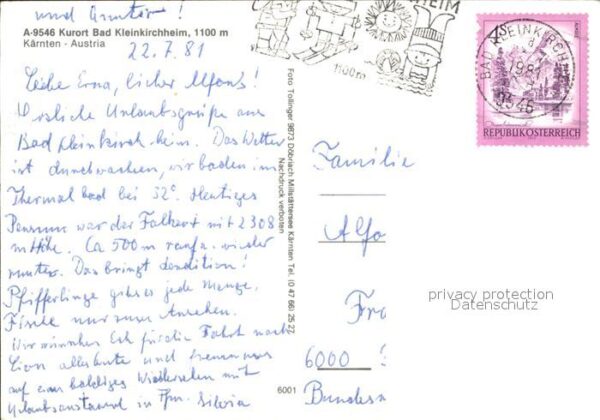 und Gunter!
A-9546 Kurort Bad Kleinkirchheim, 1100 m
Kärnten - Austria
22.7.81
Liebe Erna, lieber Alfons!
Herzliche Urlaubsgrüße aus
Bad Kleinkirchheim. Das Wetter
ist durchwachsen, wir baden im
Thermalbad bei 32°. Heutiges
Pensum war der Falkert mit 2308
m Höhe. Ca 500m rauf u. wieder
runter. Das bringt Kondition!
Pfifferlinge gibt es jede Menge.
Fische nur zum Ansehen.
Wir wünschen Euch für die Fahrt nach
alles Gute und freuen uns
auf ein baldiges Wiedersehen mit
Urlaubsaustausch in Ffm. Silvia
Foto Tollinger 9873 Döbriach Millstättersee Kärnten Tel. (0 47 66) 25 22
Nachdruck verboten
6001
HEIM
1100m
BAD KLEINKIRCH
1981
9546
REPUBLIK ÖSTERREICH
Familie
Alfo
Fr
6000
Bundes
privacy protection
Datenschutz